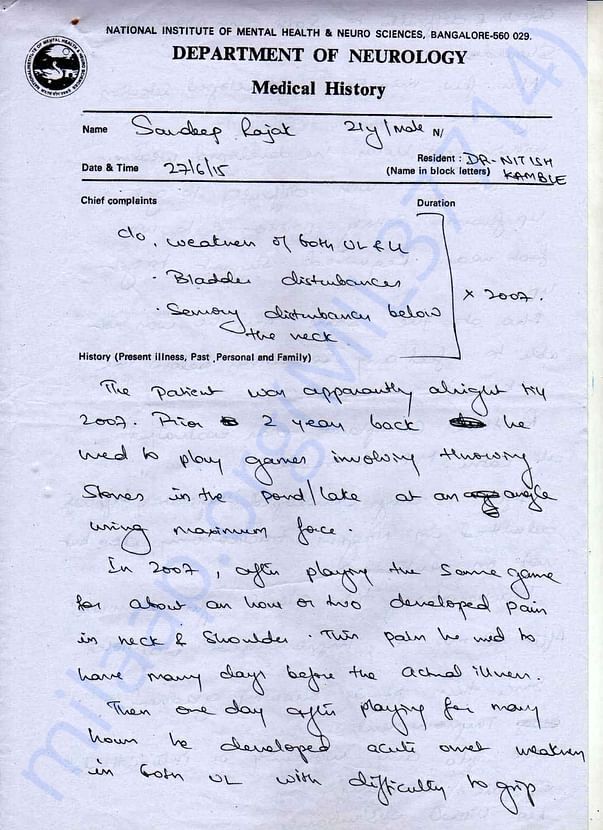 NATIONAL INSTITUTE OF MENTAL HEALTH & NEURO SCIENCES, BANGALORE-560 029.
DEPARTMENT OF NEUROLOGY
Medical History
Name Sandeep Rajak 21y/male N/
Resident : DR-NITISH
Date & Time 27/6/15 (Name in block letters) KAMBLE
Chief complaints Duration
c/o. weakness of both UL & LL
· Bladder disturbances
x 2007.
· Sensory disturbances below
the neck.
History (Present illness, Past, Personal and Family)
The patient was apparantly alright till
2007. Prior 2 years back he
used to play games involving throwing
Stones in the pond/lake at an angle
using maximum force.
In 2007, after playing the same game
for about an hour or two developed pain
in neck & Shoulder. This pain he used to
have many days before the actual illness.
Then one day after playing for many
hours he developed acute onset weakness
in both UL with difficulty to grip
milaap.org(MIL37714)